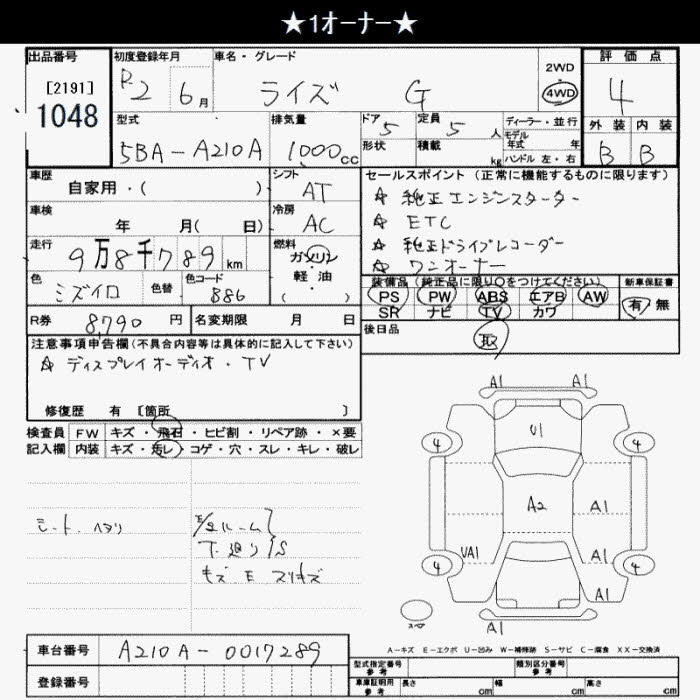 ★1オーナー★
出品番号 初度登録年月 車名・グレード 2WD 評価点
[2191] R2 6月 ライズ G 4WD 4
1048
型式 排気量 ドア 5 定員 5人 ディーラー・並行 外装 内装
モデル年式 年
5BA-A210A 1000cc 形状 積載 kg ハンドル 左・右 B B
車歴 シフト セールスポイント(正常に機能するものに限ります)
自家用・( ) AT ☆ 純正エンジンスターター
車検 冷房 ☆ ETC
年 月( 日) AC ☆ 純正ドライブレコーダー
走行 燃料 ☆ ワンオーナー
9万8千789km ガソリン
軽・油
( )
色 色替 色コード 装備品(純正品に限り○をつけてください) 新車保証書
ミズイロ B86 PS PW ABS エアB AW 有・無
SR ナビ TV カワ
R券 8,790円 名変期限 月 日 後日品
取
注意事項申告欄(不具合内容等は具体的に記入して下さい)
☆ ディスプレイオーディオ・TV
修復歴 有 [箇所 ]
検査員 FW キズ・飛石・ヒビ割・リペア跡・×要
記入欄 内装 キズ・汚レ・コゲ・穴・スレ・キレ・破レ
A1 A1
U1
4 4
A2 A1
UA1 A1
4 4
A1
A1
シート ヘタリ
下廻り S
キズ E スリキズ
A-キズ E-エクボ U-凹み W-補修跡 S-サビ C-腐食 XX-交換済
車台番号 A210A-0017289
登録番号
型式指定番号 参考 類別区分番号 参考
車庫証明用 参考 長さ cm 幅 cm 高さ cm